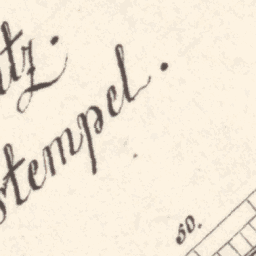 tz.
stempel.
50.